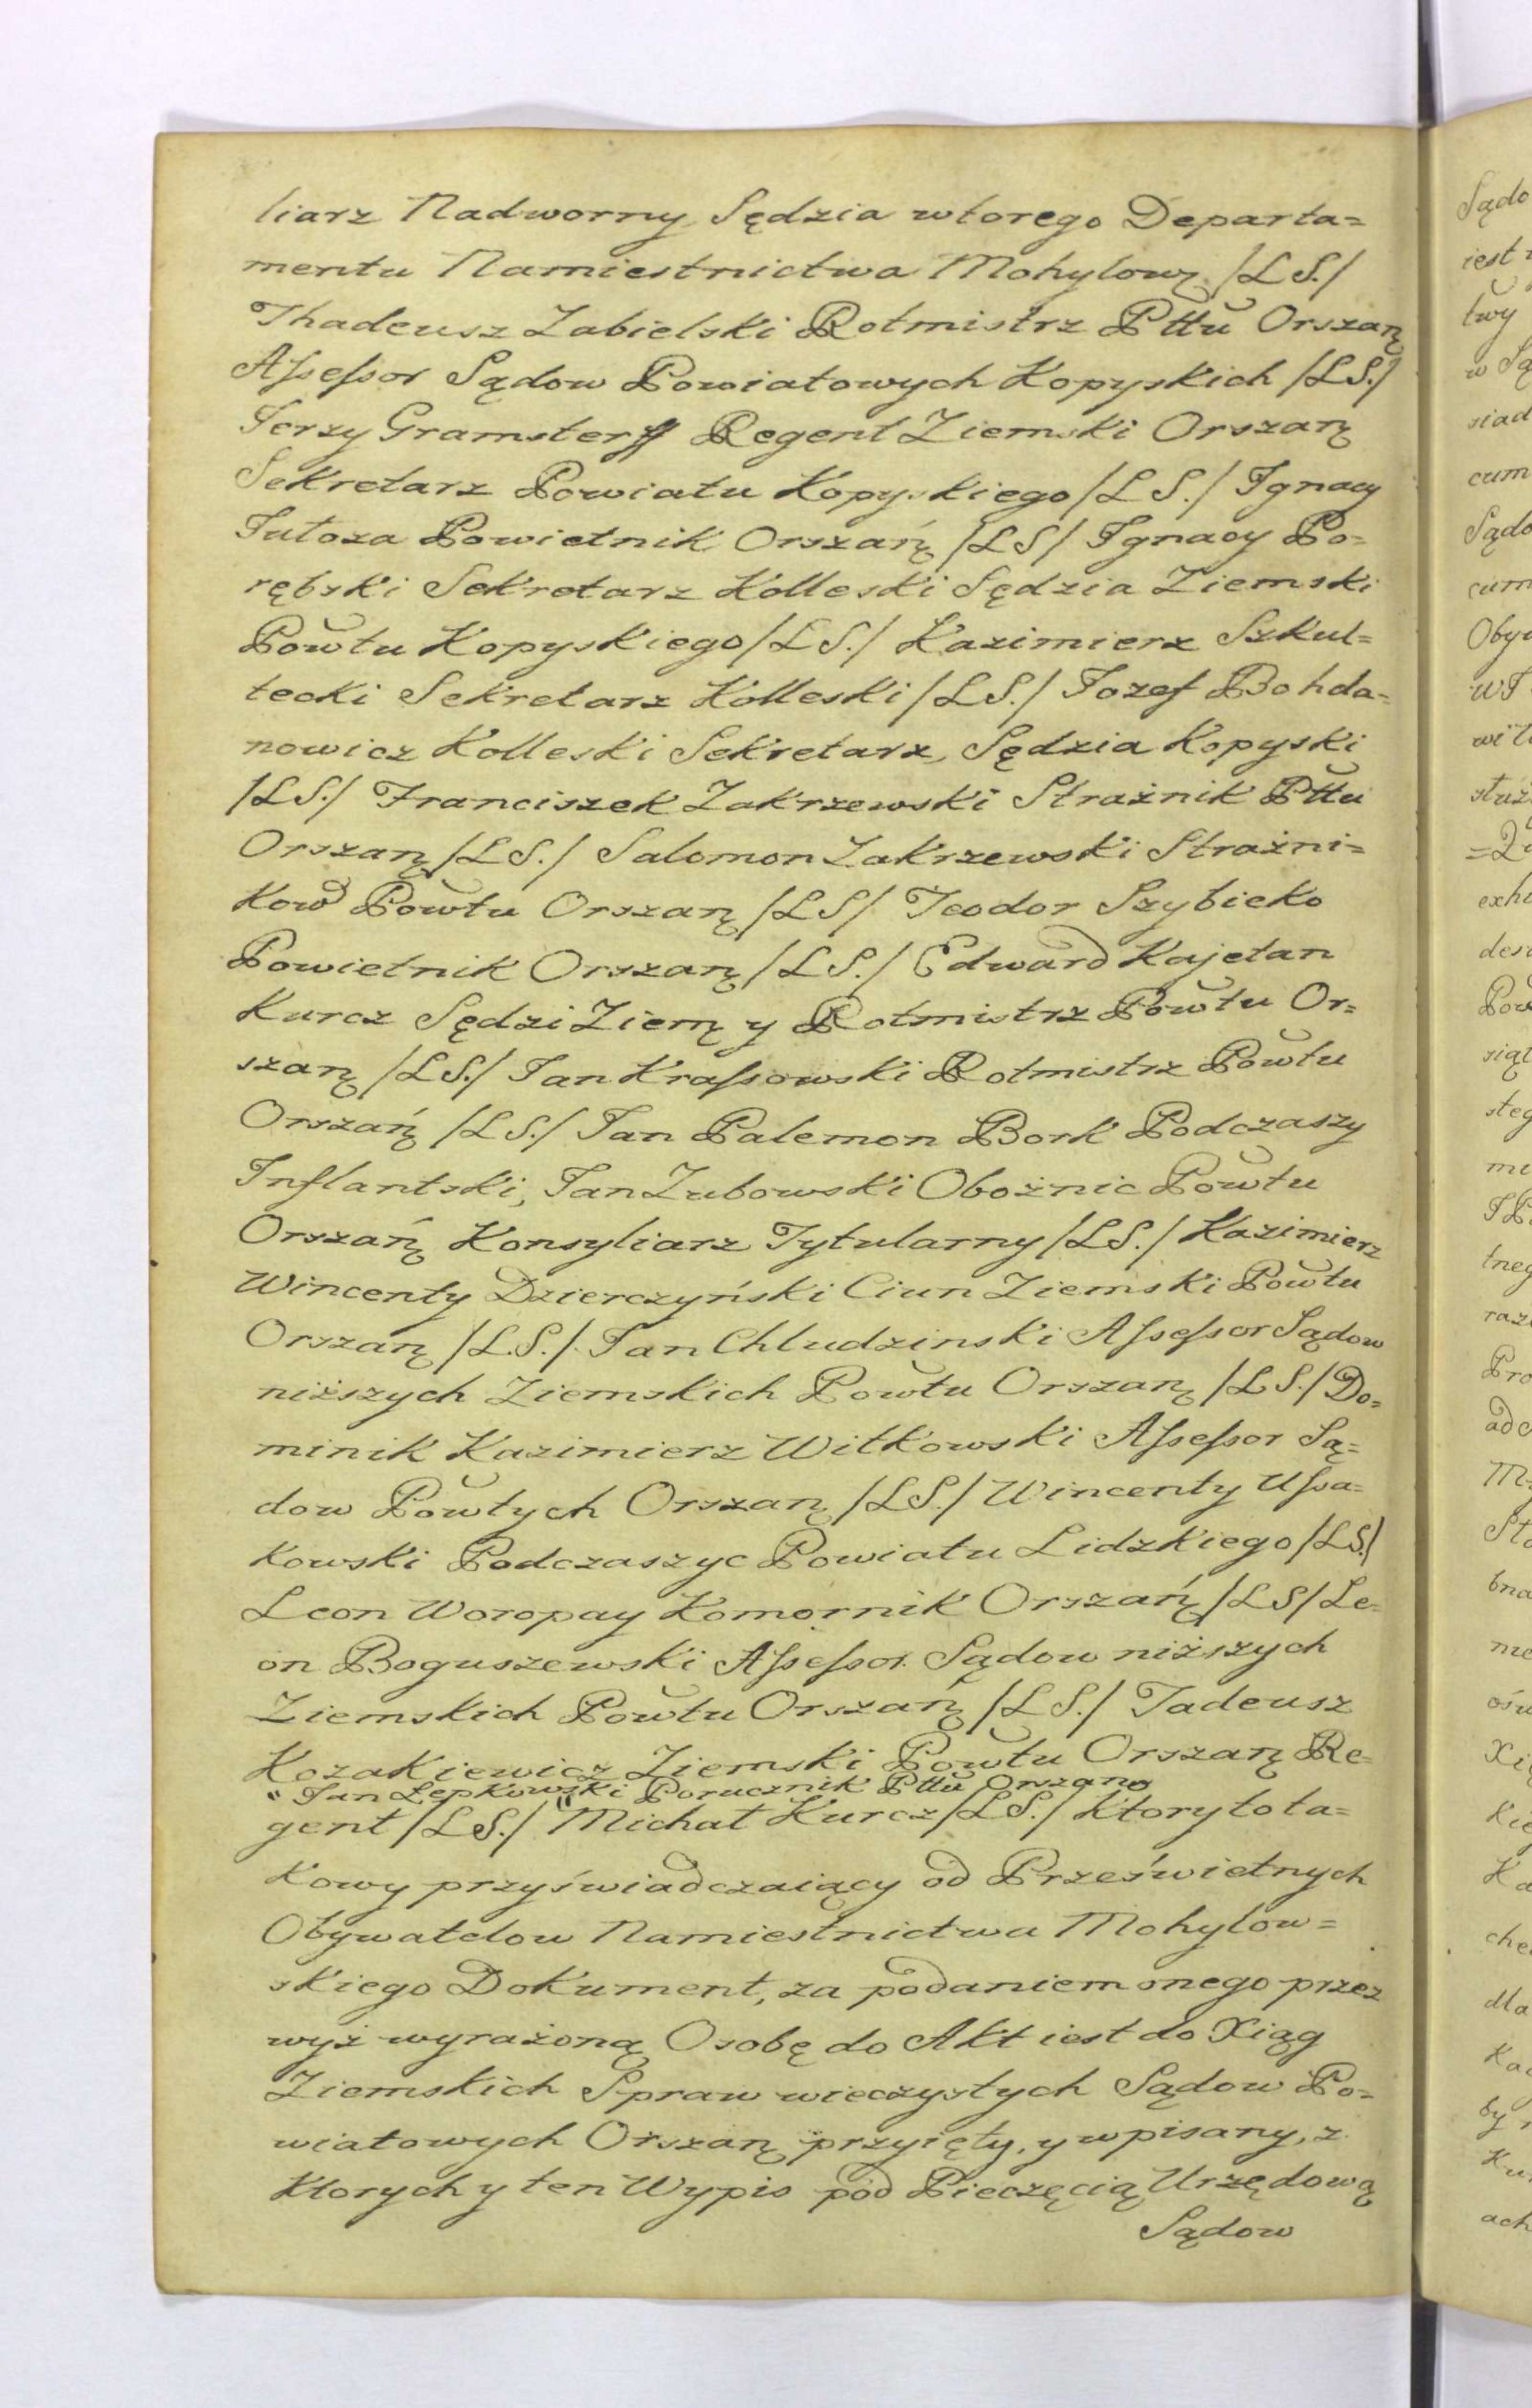 liarz Nadworny Sędzia wtorego Departa=
mentu Namiestnictwa Mohylowᶎ /LS./
Thadeusz Zabielski Rotmistrz Pttu Orszanᶎ
Assessor Sądow Powiatowych Kopyskich /LS./
Jerzy Gramsterff Regent Ziemski Orszanᶎ
Sekretarz Powiatu Kopyskiego /LS./ Ignacy
Powietnik Orszańᶎ /LS/ Ignacy Po=
rębski Sekretarz Kolleski Sędzia Ziemski
Powtu Kopyskiego /LS./ Kazimierz Szkul=
tecki Sekretarz Kolleski /LS./ Jozef Bohda=
nowicz Kolleski Sekretarz, Sędzia Kopyski
/LS./ Franciszek Zakrzewski Strażnik Pttu
Orszanᶎ /LS./ Salomon Zakrzewski Strażni=
kow Powtu Orszanᶎ /LS/ Teodor Szybieko
Powietnik Orszanᶎ /LS./ Edward Kajetan
Kurcz Sędzi Ziemᶎ y Rotmistrz Powtu Or=
szanᶎ /LS./ Jan Krassowski Rotmistrz Powtu
Orszańᶎ /LS./ Jan Palemon Bork Podczaszy
Inflantski, Jan Zubowski Oboźnic Powtu
Orszańᶎ Konsyliarz Tytularny /LS./ Kazimierz
Wincenty Dzierczyński Ciun Ziemski Powtu
Orszanᶎ /L.S./ Jan Chludzinski Assessor Sądow
niższych Ziemskich Powtu Orszanᶎ /LS./ Do=
minik Kazimierz Witkowski Assessor Są=
dow Powtych Orszanᶎ /LS./ Wincenty Ussa=
kowski Podczaszyc Powiatu Lidzkiego /LS./
Leon Woropay Komornik Orszańᶎ /LS/ Le=
on Boguszewski Assessor Sądow niższych
Ziemskich Powtu Orszańᶎ /LS./ Tadeusz
Kozakiewicz Ziemski Powtu Orszanᶎ Re=
" Jan Łepkowski Porucznik Pttu Orszanᶎ
gent /LS./ " Michał Kurcz /LS./ ktory to ta=
kowy przyświadczaiący od Prześwietnych
Obywatelow Namiestnictwa Mohylow=
skiego Dokument, za podaniem onego przez
wyż wyrażoną Osobę do Akt iest do Xiąg
Ziemskich Spraw wieczystych Sądow Po=
wiatowych Orszanᶎ przyięty, y wpisany, z
ktorych y ten Wypis pod Pieczęcią Urzędową
Sądow